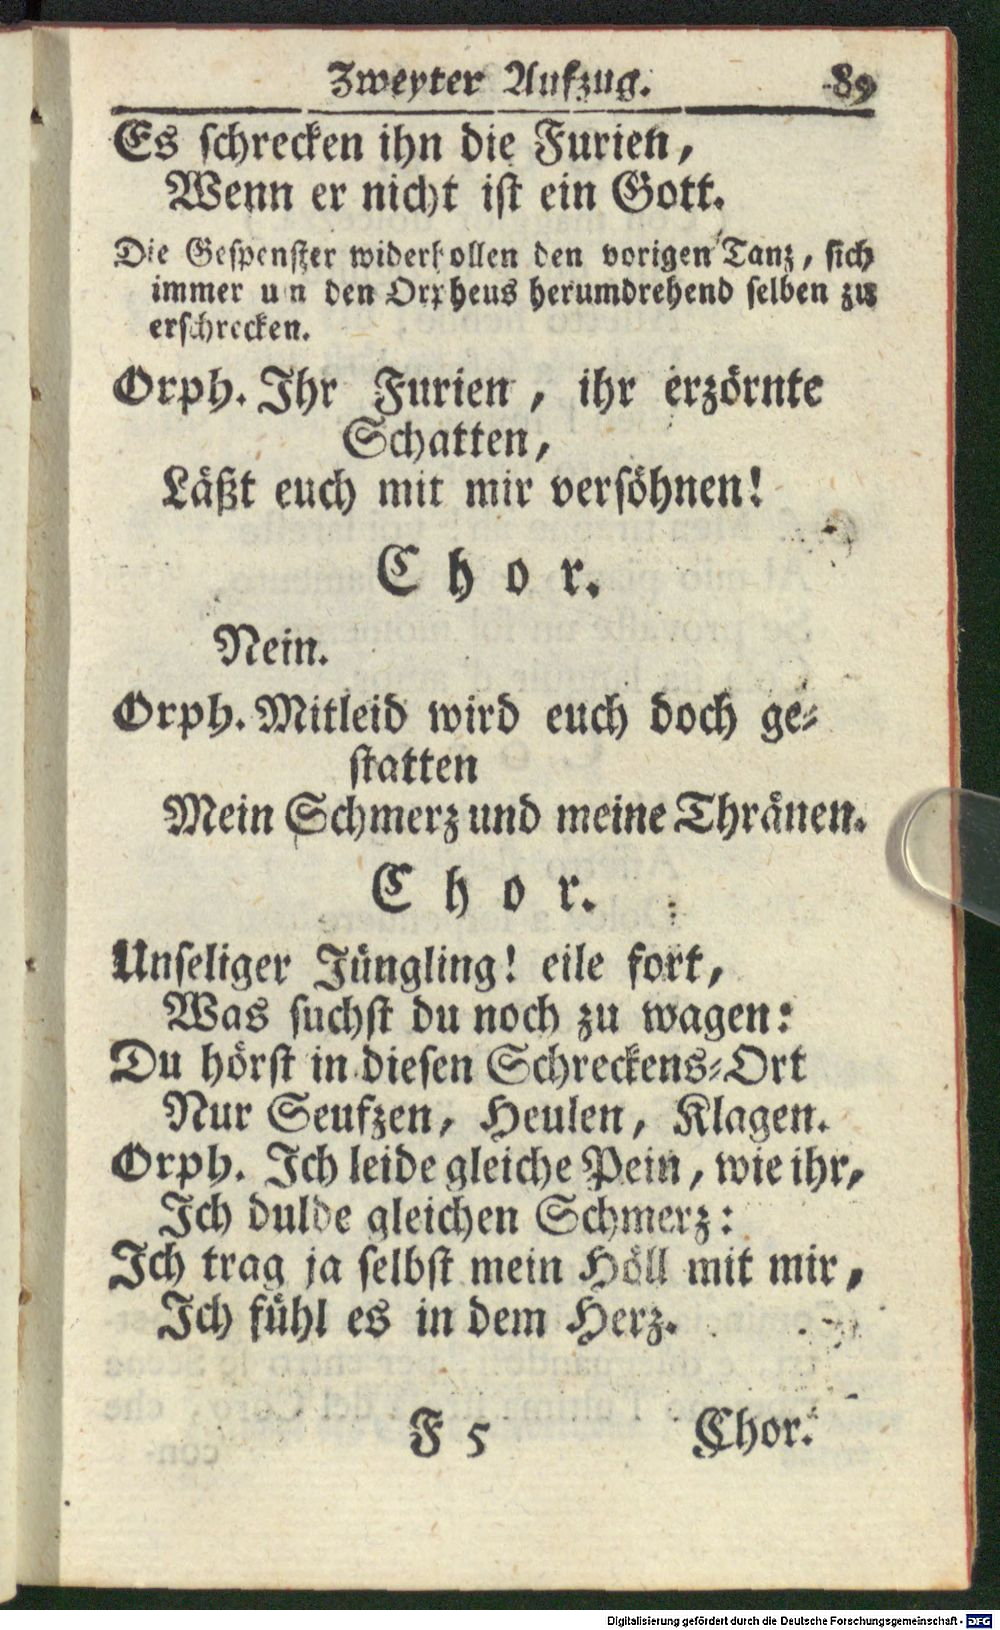 Zweyter Aufzug. 89
Es schrecken ihn die Furien,
Wenn er nicht ist ein Gott.
Die Gespenster widerhollen den vorigen Tanz, sich
immer um den Orpheus herumdrehend selben zu
erschrecken.
Orph. Ihr Furien, ihr erzörnte
Schatten,
Läßt euch mit mir versöhnen!
Chor.
Nein.
Orph. Mitleid wird euch doch ge-
statten
Mein Schmerz und meine Thränen.
Chor.
Unseliger Jüngling! eile fort,
Was suchst du noch zu wagen:
Du hörst in diesen Schreckens-Ort
Nur Seufzen, Heulen, Klagen.
Orph. Ich leide gleiche Pein, wie ihr,
Ich dulde gleichen Schmerz:
Ich trag ja selbst mein Höll mit mir,
Ich fühl es in dem Herz.
F 5 Chor.
Digitalisierung gefördert durch die Deutsche Forschungsgemeinschaft - DFG